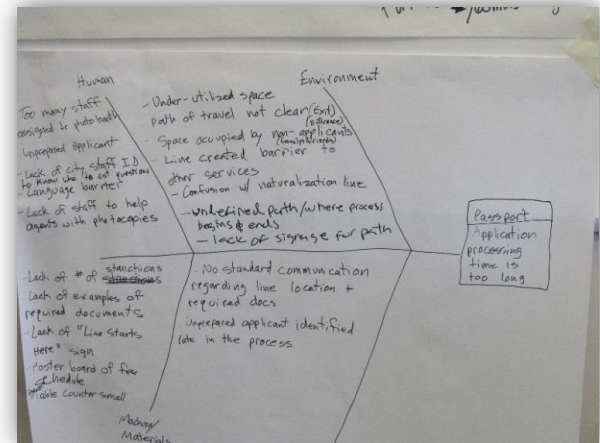 Human
Too many staff
assigned to photo booth
Unprepared Applicant
- Lack of city staff I.D
to know who to ask questions
- Language barrier
- Lack of staff to help
agents with photocopies
Environment
- Under-utilized space
path of travel not clear (Exit)
(Entrance)
- Space occupied by non-applicants
(family/friends)
- Line created barrier to
other services
- Confusion w/ naturalization line
- undefined path/where process
begins & ends
- lack of signage for path
Passport
Application
processing
time is
too long
- Lack of # of stanchions
- Lack of examples of
required documents
- Lack of "Line Starts
Here" sign
- Poster board of fee
schedule
table counter small
Machine/
Materials
- No standard communication
regarding line location +
required docs
Unprepared applicant identified
late in the process